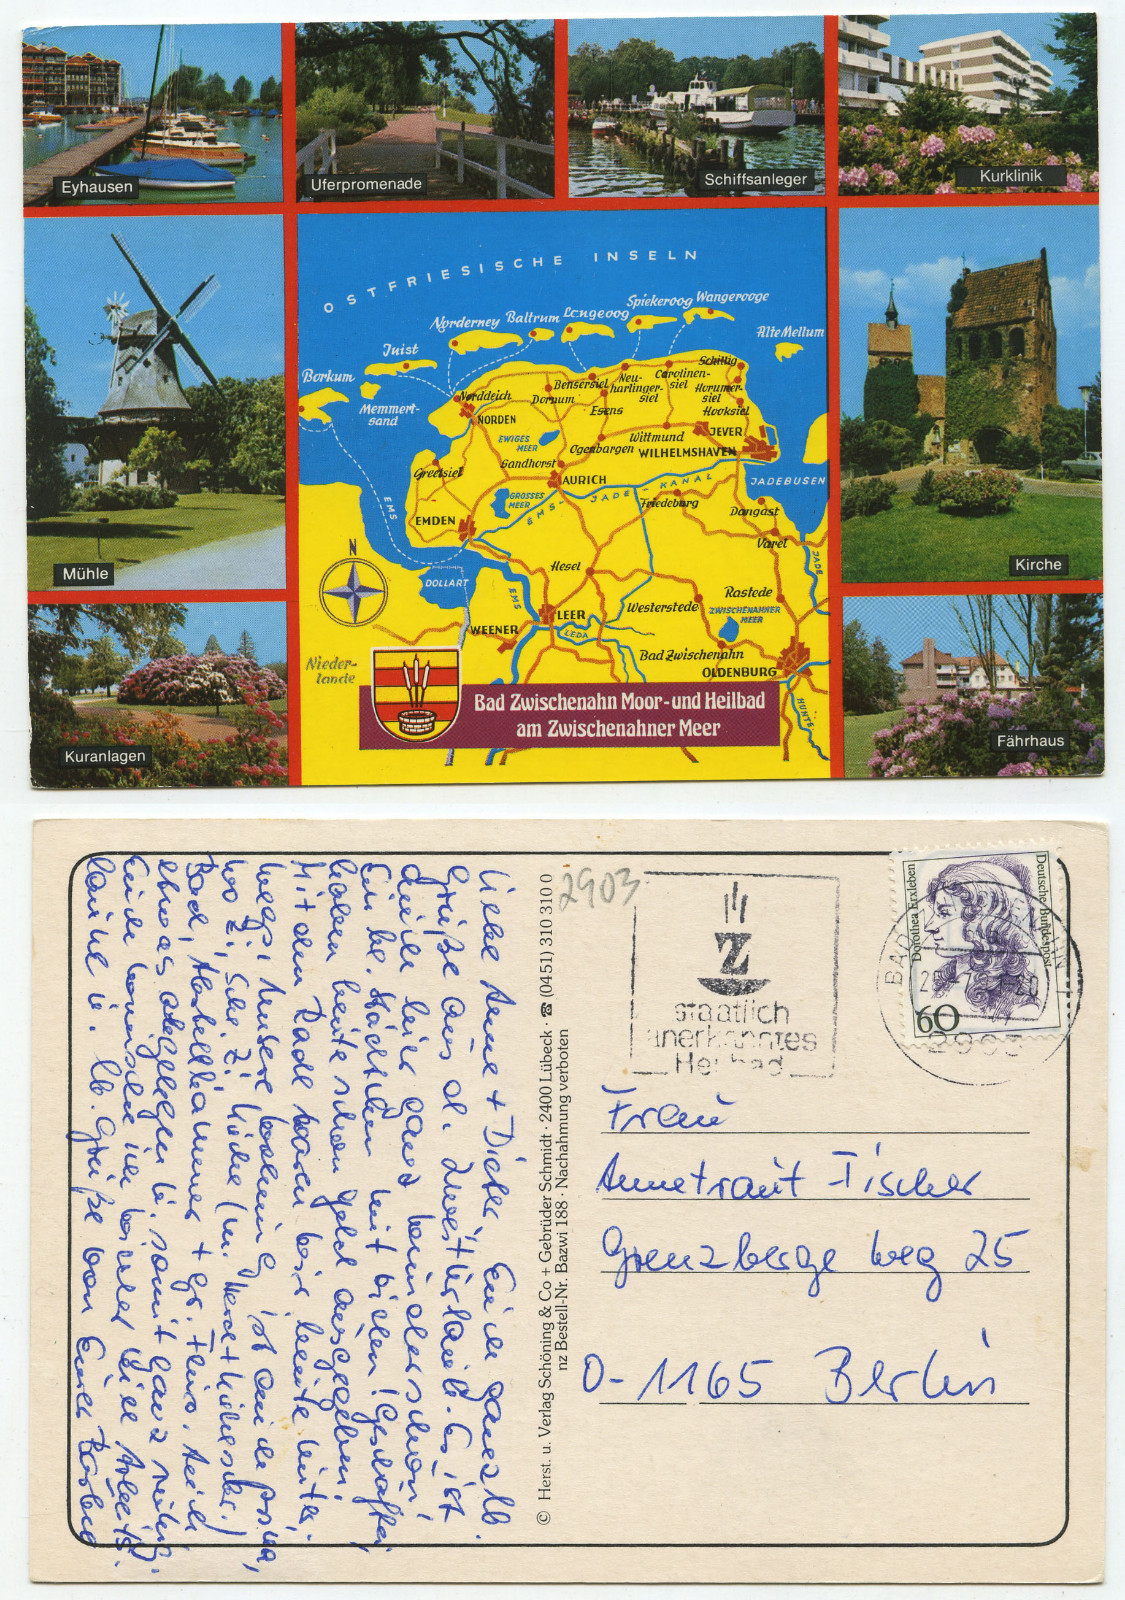 Eyhausen
Uferpromenade
Schiffsanleger
Kurklinik
Mühle
Kirche
Kuranlagen
Fährhaus
OSTFRIESISCHE INSELN
Spiekeroog Wangerooge
Norderney Baltrum Langeoog
Alte Mellum
Juist
Borkum
Memmert-
sand
Schillig
Carolinen-
siel
Neu-
harlinger-
siel
Bensersiel
Horumer-
siel
Norddeich
Dornum
Esens
Hooksiel
NORDEN
EWIGES
MEER
Wittmund
JEVER
Ogenbargen
WILHELMSHAVEN
Greetsiel
Sandhorst
AURICH
JADEBUSEN
GROSSES
MEER
EMS-JADE-KANAL
Friedeburg
Dangast
EMS
EMDEN
Varel
JADE
N
Hesel
DOLLART
EMS
Rastede
Westerstede
ZWISCHENAHNER
MEER
LEER
LEDA
WEENER
Bad Zwischenahn
OLDENBURG
Nieder-
lande
HUNTE
Bad Zwischenahn Moor- und Heilbad
am Zwischenahner Meer
Liebe Anne + Dieter, Euch ganz lb.
Grüße aus d. Zweiturlaub. Es ist
hier ganz wunderschön!
Ein be. Städtchen mit vielen Geschäften,
haben heute schon Geld ausgegeben.
Mit dem Radl waren wir heute unter-
wegs. Unsere Wohnung ist
Wo Zi, Schl. Zi, Küche (m. Herd + Kühlschr.)
Bad, Abstellkammer + gr. Flur.
etwas abgelegen u. somit ganz ruhig.
Euch wünschen wir weiter
u. lb. Grüße von Eurer Bärbel
© Herst. u. Verlag Schöning & Co + Gebrüder Schmidt · 2400 Lübeck · ☎ (0451) 310 310 0
nz Bestell-Nr. Bazwi 188 · Nachahmung verboten
2903
Z
staatlich
anerkanntes
Heilbad
Dorothea Erxleben
Deutsche Bundespost
60
2903
Frau
Annetraut Fischer
Grenzberge weg 25
O-1165 Berlin